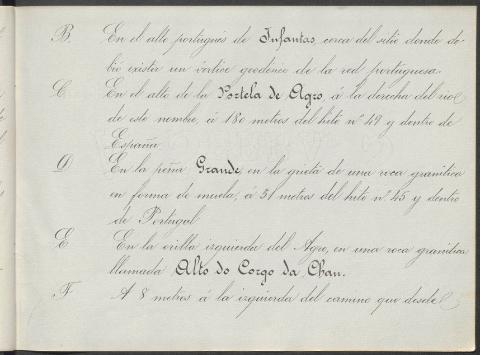 B. En el alto portugués de Infantas, cerca del sitio donde de-
bió existir un vértice geodésico de la red portuguesa.
C En el alto de la Portela de Agro, á la derecha del rio
de este nombre, á 180 metros del hito nº 49 y dentro de
España.
D En la peña Grande, en la grieta de una roca granítica
en forma de muela, á 51 metros del hito nº 45 y dentro
de Portugal.
E En la orilla izquierda del Agro, en una roca granítica
llamada Alto do Corgo da Chan.
F. A 8 metros á la izquierda del camino que desde